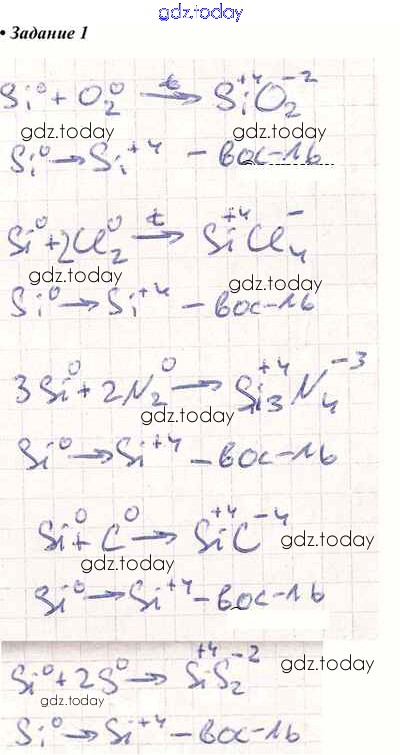 gdz.today
• Задание 1
Si⁰ + O₂⁰ —t→ Si⁺⁴O₂⁻²
gdz.today gdz.today
Si⁰ → Si⁺⁴ – вос-ль
Si⁰ + 2Cl₂⁰ —t→ Si⁺⁴Cl₄⁻
gdz.today gdz.today
Si⁰ → Si⁺⁴ – вос-ль
3Si⁰ + 2N₂⁰ → Si₃⁺⁴N₄⁻³
gdz.today
Si⁰ → Si⁺⁴ – вос-ль
Si⁰ + C⁰ → Si⁺⁴C⁻⁴ gdz.today
gdz.today
Si⁰ → Si⁺⁴ – вос-ль
Si⁰ + 2S⁰ → Si⁺⁴S₂⁻² gdz.today
gdz.today
Si⁰ → Si⁺⁴ – вос-ль